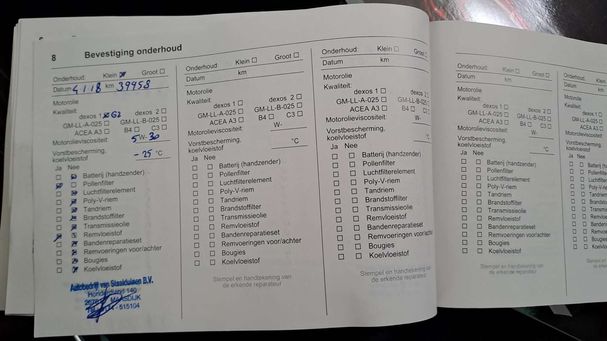 8 Bevestiging onderhoud
Onderhoud: Klein ☒ Groot ☐
Datum 4 1 18 km 39958
Motorolie
Kwaliteit:
dexos 1 ☒ G2 dexos 2 ☐
GM-LL-A-025 ☐ GM-LL-B-025 ☐
ACEA A3 ☐ B4 ☐ C3 ☐
Motorolieviscositeit: 5 W- 30
Vorstbescherming,
koelvloeistof - 25 °C
Ja Nee
Batterij (handzender)
Pollenfilter
Luchtfilterelement
Poly-V-riem
Tandriem
Brandstoffilter
Transmissieolie
Remvloeistof
Bandenreparatieset
Remvoeringen voor/achter
Bougies
Koelvloeistof
Autobedrijf van Staalduinen B.V.
Honderdland 140
MAASDIJK
515104
Onderhoud: Klein ☐ Groot ☐
Datum km
Motorolie
Kwaliteit:
dexos 1 ☐ dexos 2 ☐
GM-LL-A-025 ☐ GM-LL-B-025 ☐
ACEA A3 ☐ B4 ☐ C3 ☐
Motorolieviscositeit: W-
Vorstbescherming,
koelvloeistof °C
Ja Nee
☐ ☐ Batterij (handzender)
☐ ☐ Pollenfilter
☐ ☐ Luchtfilterelement
☐ ☐ Poly-V-riem
☐ ☐ Tandriem
☐ ☐ Brandstoffilter
☐ ☐ Transmissieolie
☐ ☐ Remvloeistof
☐ ☐ Bandenreparatieset
☐ ☐ Remvoeringen voor/achter
☐ ☐ Bougies
☐ ☐ Koelvloeistof
Stempel en handtekening van
de erkende reparateur
Onderhoud: Klein ☐ Groot ☐
Datum km
Motorolie
Kwaliteit:
dexos 1 ☐ dexos 2 ☐
GM-LL-A-025 ☐ GM-LL-B-025 ☐
ACEA A3 ☐ B4 ☐ C3 ☐
Motorolieviscositeit: W-
Vorstbescherming,
koelvloeistof °C
Ja Nee
☐ ☐ Batterij (handzender)
☐ ☐ Pollenfilter
☐ ☐ Luchtfilterelement
☐ ☐ Poly-V-riem
☐ ☐ Tandriem
☐ ☐ Brandstoffilter
☐ ☐ Transmissieolie
☐ ☐ Remvloeistof
☐ ☐ Bandenreparatieset
☐ ☐ Remvoeringen voor/achter
☐ ☐ Bougies
☐ ☐ Koelvloeistof
Stempel en handtekening van
de erkende reparateur
Onderhoud: Klein ☐ Groot ☐
Datum km
Motorolie
Kwaliteit:
dexos 1 ☐ dexos 2 ☐
GM-LL-A-025 ☐ GM-LL-B-025 ☐
ACEA A3 ☐ B4 ☐ C3 ☐
Motorolieviscositeit: W-
Vorstbescherming,
koelvloeistof °C
Ja Nee
☐ ☐ Batterij (handzender)
☐ ☐ Pollenfilter
☐ ☐ Luchtfilterelement
☐ ☐ Poly-V-riem
☐ ☐ Tandriem
☐ ☐ Brandstoffilter
☐ ☐ Transmissieolie
☐ ☐ Remvloeistof
☐ ☐ Bandenreparatieset
☐ ☐ Remvoeringen voor/achter
☐ ☐ Bougies
☐ ☐ Koelvloeistof
Stempel en handtekening van
de erkende reparateur
Onderhoud:
Datum
Motorolie
Kwaliteit:
Ja Nee